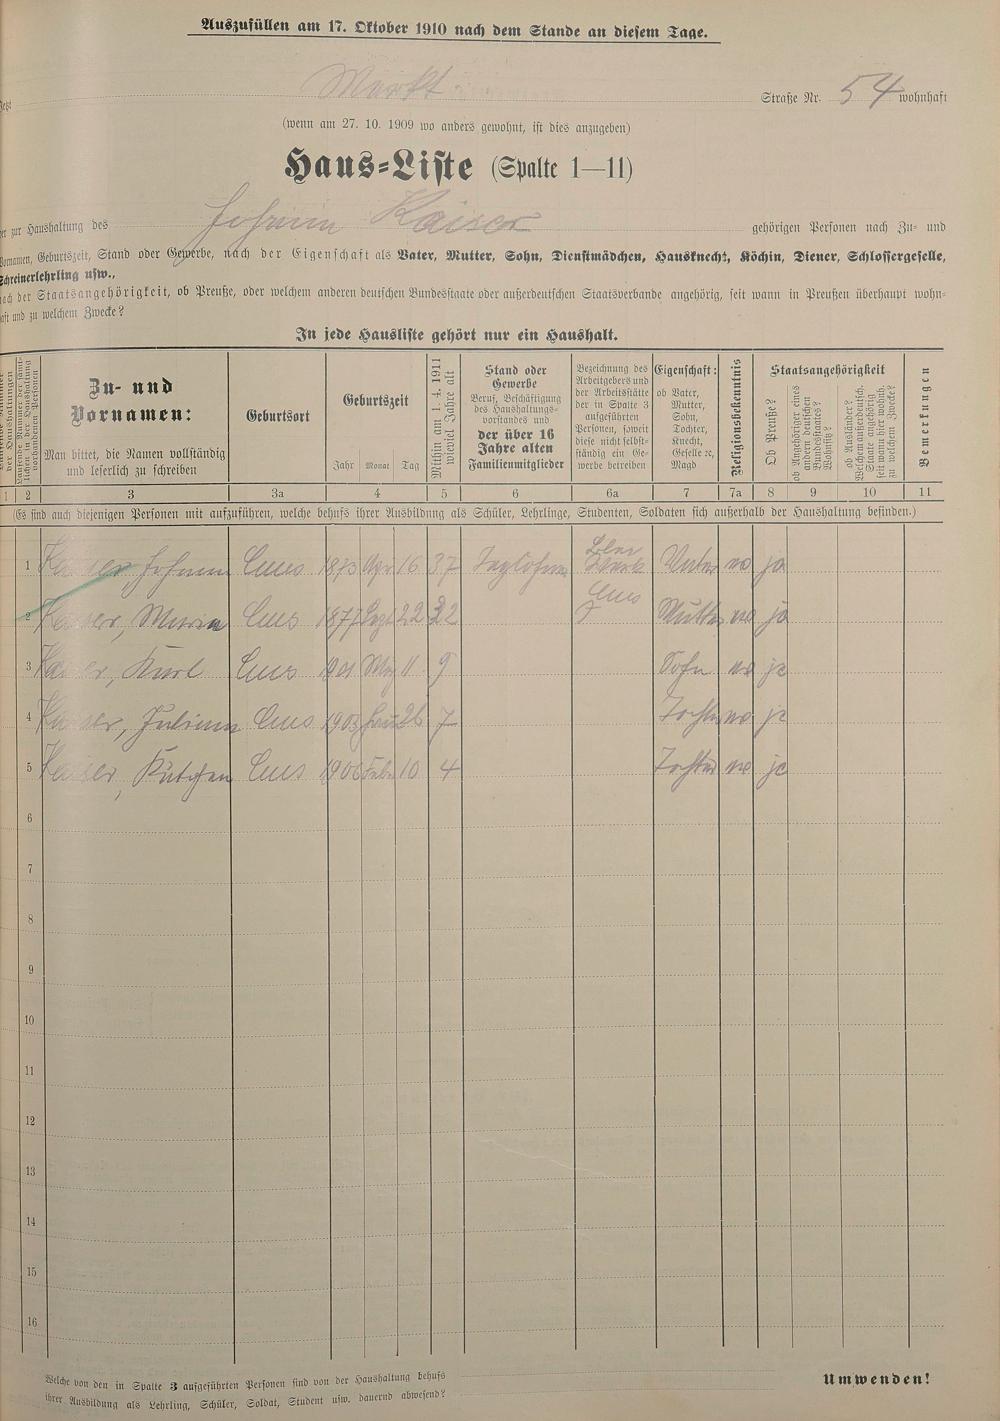 Auszufüllen am 17. Oktober 1910 nach dem Stande an diesem Tage.
Markt Straße Nr. 54 wohnhaft
(wenn am 27. 10. 1909 wo anders gewohnt, ist dies anzugeben)
Haus-Liste (Spalte 1—11)
zur Haushaltung des Johann Kaiser gehörigen Personen nach Zu- und
Vornamen, Geburtszeit, Stand oder Gewerbe, nach der Eigenschaft als Vater, Mutter, Sohn, Dienstmädchen, Hausknecht, Köchin, Diener, Schlossergeselle,
Schreinerlehrling usw.,
nach der Staatsangehörigkeit, ob Preuße, oder welchem anderen deutschen Bundesstaate oder außerdeutschen Staatsverbande angehörig, seit wann in Preußen überhaupt wohn-
haft und zu welchem Zwecke?
In jede Hausliste gehört nur ein Haushalt.
Zu- und
Vornamen:
Man bittet, die Namen vollständig
und leserlich zu schreiben
Geburtsort
Geburtszeit
Jahr Monat Tag
Mithin am 1. 4. 1911
wieviel Jahre alt
Stand oder
Gewerbe
Beruf, Beschäftigung
des Haushaltungs-
vorstandes und
der über 16
Jahre alten
Familienmitglieder
Bezeichnung des
Arbeitgebers und
der Arbeitsstätte
der in Spalte 3
aufgeführten
Personen, soweit
diese nicht selbst-
ständig ein Ge-
werbe betreiben
Eigenschaft:
ob Vater,
Mutter,
Sohn,
Tochter,
Knecht,
Geselle ec,
Magd
Religionsbekenntnis
Staatsangehörigkeit
Ob Preuße?
ob Angehöriger eines
andern deutschen
Bundesstaates?
Wohnsitz?
ob Ausländer?
Welchem außerdeutsch.
Staate angehörig
seit wann hier wohnh.
zu welchem Zwecke?
Bemerkungen
1 2 3 3a 4 5 6 6a 7 7a 8 9 10 11
(Es sind auch diejenigen Personen mit aufzuführen, welche behufs ihrer Ausbildung als Schüler, Lehrlinge, Studenten, Soldaten sich außerhalb der Haushaltung befinden.)
1 Kaiser, Johann Ems 1873 Apr 16 37 Taglöhner Blei Werk Vater ev ja
2 Kaiser, Maria Ems 1877 Sept 22 32 Ems Mutter ev ja
3 Kaiser, Karl Ems 1901 11 9 Sohn ev ja
4 Kaiser, Ems 1903 26 7 Tochter ev ja
5 Kaiser, Kätchen Ems 1906 Febr 10 4 Tochter ev ja
6
7
8
9
10
11
12
13
14
15
16
Welche von den in Spalte 3 aufgeführten Personen sind von der Haushaltung behufs
ihrer Ausbildung als Lehrling, Schüler, Soldat, Student usw. dauernd abwesend?
Umwenden!